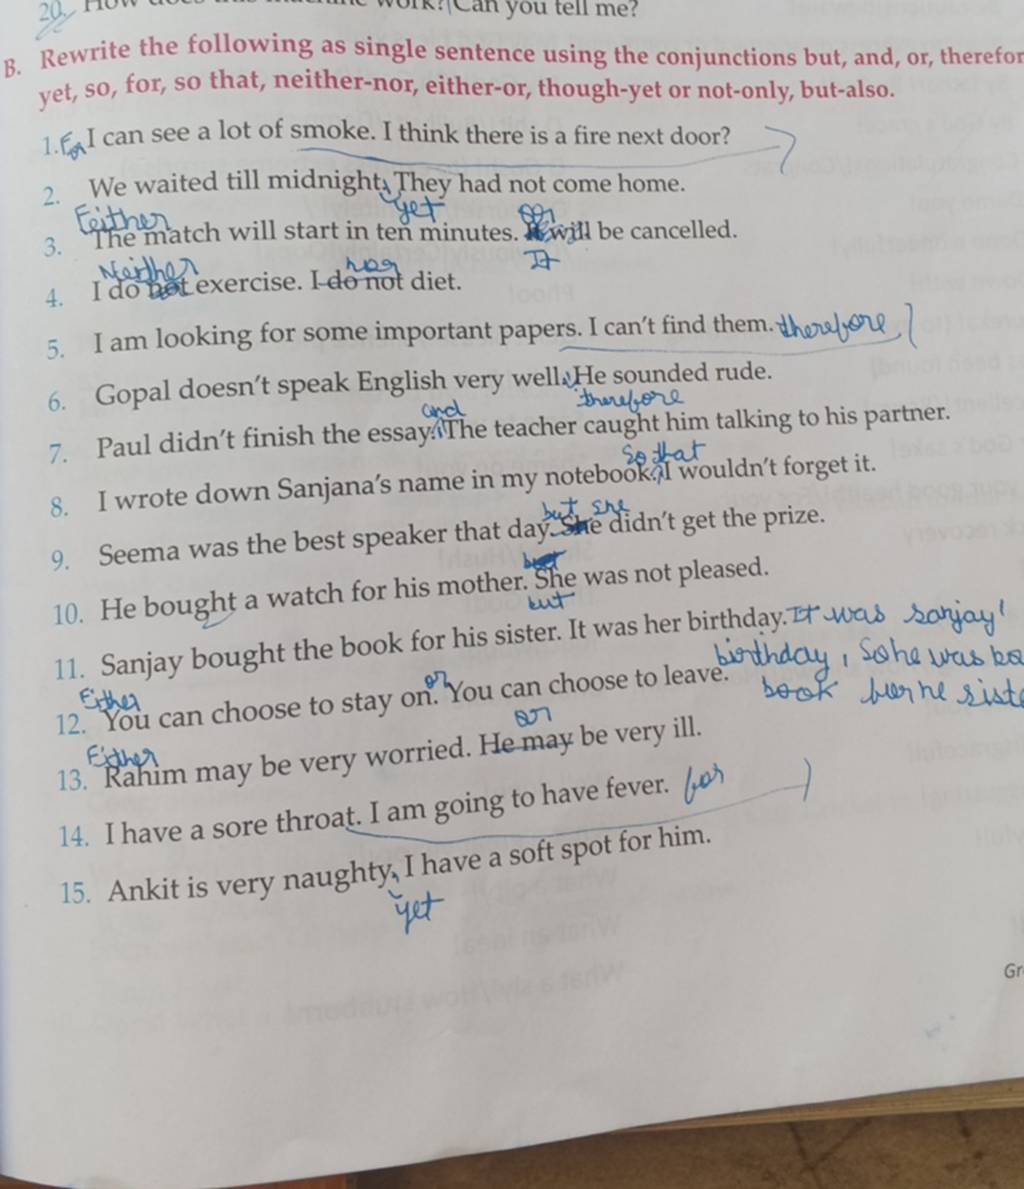 20. How does this machine work? Can you tell me?
B. Rewrite the following as single sentence using the conjunctions but, and, or, therefor
yet, so, for, so that, neither-nor, either-or, though-yet or not-only, but-also.
1. For I can see a lot of smoke. I think there is a fire next door?
2. We waited till midnight, They had not come home.
yet
Either or
3. The match will start in ten minutes. It will be cancelled.
It
Neither nor
4. I do not exercise. I do not diet.
5. I am looking for some important papers. I can't find them. therefore
6. Gopal doesn't speak English very well. He sounded rude.
therefore
and
7. Paul didn't finish the essay. The teacher caught him talking to his partner.
so that
8. I wrote down Sanjana's name in my notebook. I wouldn't forget it.
but she
9. Seema was the best speaker that day. She didn't get the prize.
but
10. He bought a watch for his mother. She was not pleased.
but
11. Sanjay bought the book for his sister. It was her birthday. It was sanjay'
birthday, So he was bo
book siste
Either or
12. You can choose to stay on. You can choose to leave.
Either or
13. Rahim may be very worried. He may be very ill.
14. I have a sore throat. I am going to have fever. for
15. Ankit is very naughty, I have a soft spot for him.
yet
Gr